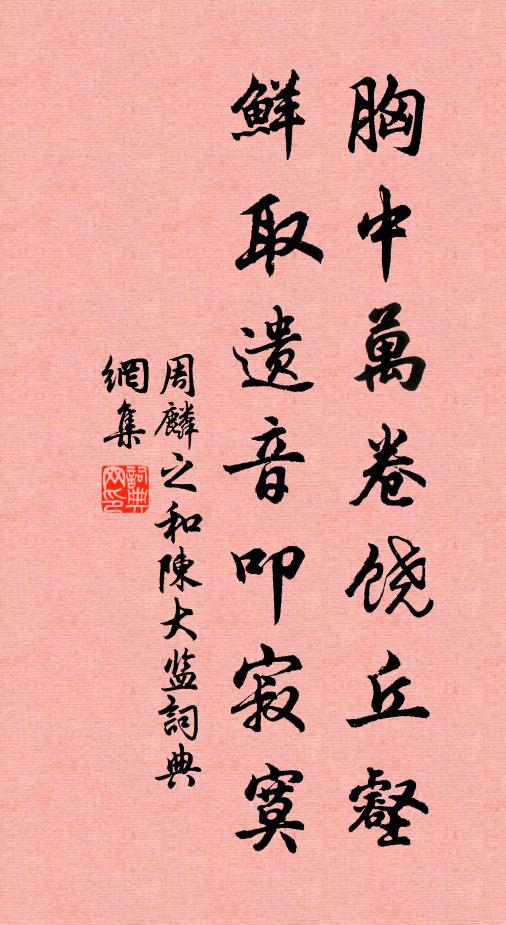 胸中萬卷饶丘壑
鮮取遗音叩寂寞
周麟之和陳大监詞典
網集
詞典網印